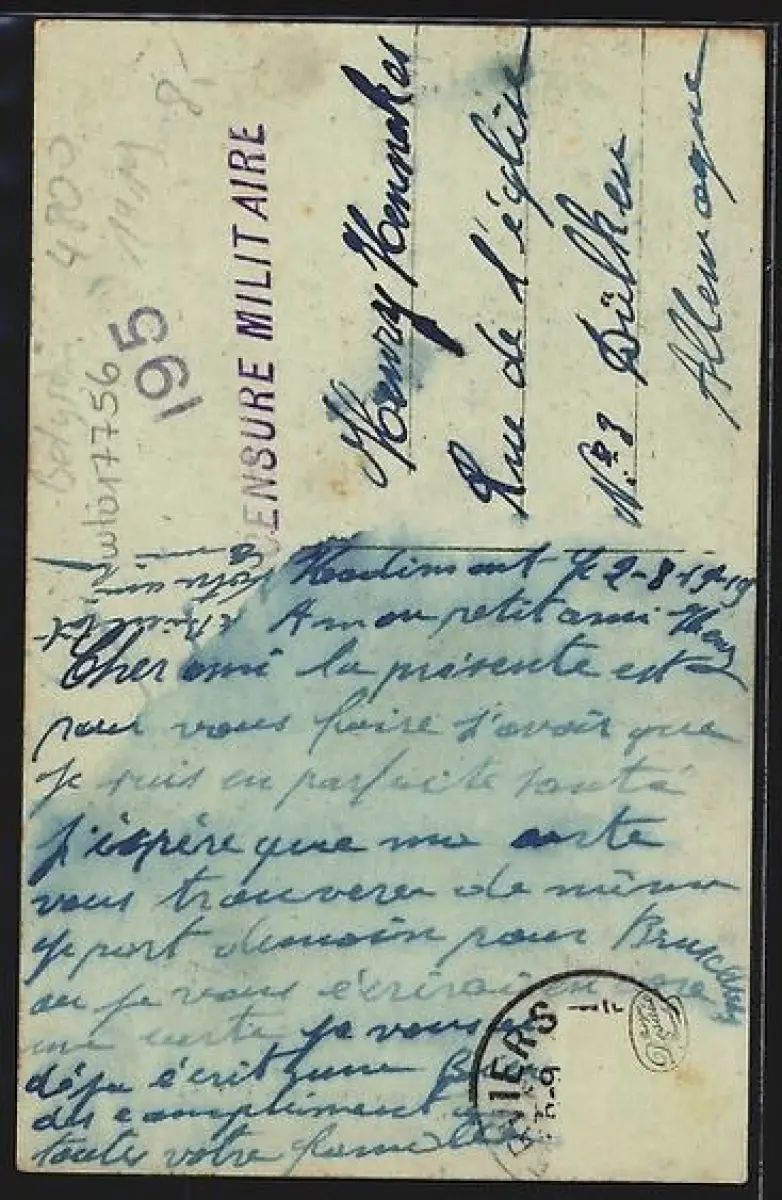 Belgien 4800
1919 8,-
wlo17756
195
CENSURE MILITAIRE
Henry
Rue de l'église
N.o 8 Dülken
Allemagne
Hodimont le 2-8-1919
A mon petit ami Henry
Cher ami la présente est
pour vous faire s'avoir que
je suis en parfaite santé
j'éspére que ma carte
vous trouvera de même
je part demain pour Bruxelles
ou je vous écrirai encore
une carte je vous ai
déja écrit une
des compliments a
toute votre famille
VIERS